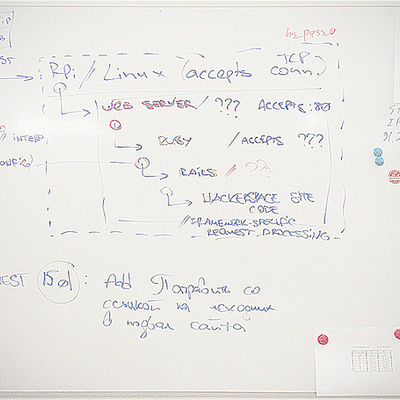 hs_pass
RPi // Linux (accepts TCP conn.)
WEB SERVER / ??? ACCEPTS :80
// INTERP
RUBY / ACCEPTS ???
CONFIG)
RAILS // ??
HACKERSPACE SITE
CODE
// FRAMEWORK-SPECIFIC
REQUEST PROCESSING
: Add Поправить со
ссылкой на исходник
в подвал сайта